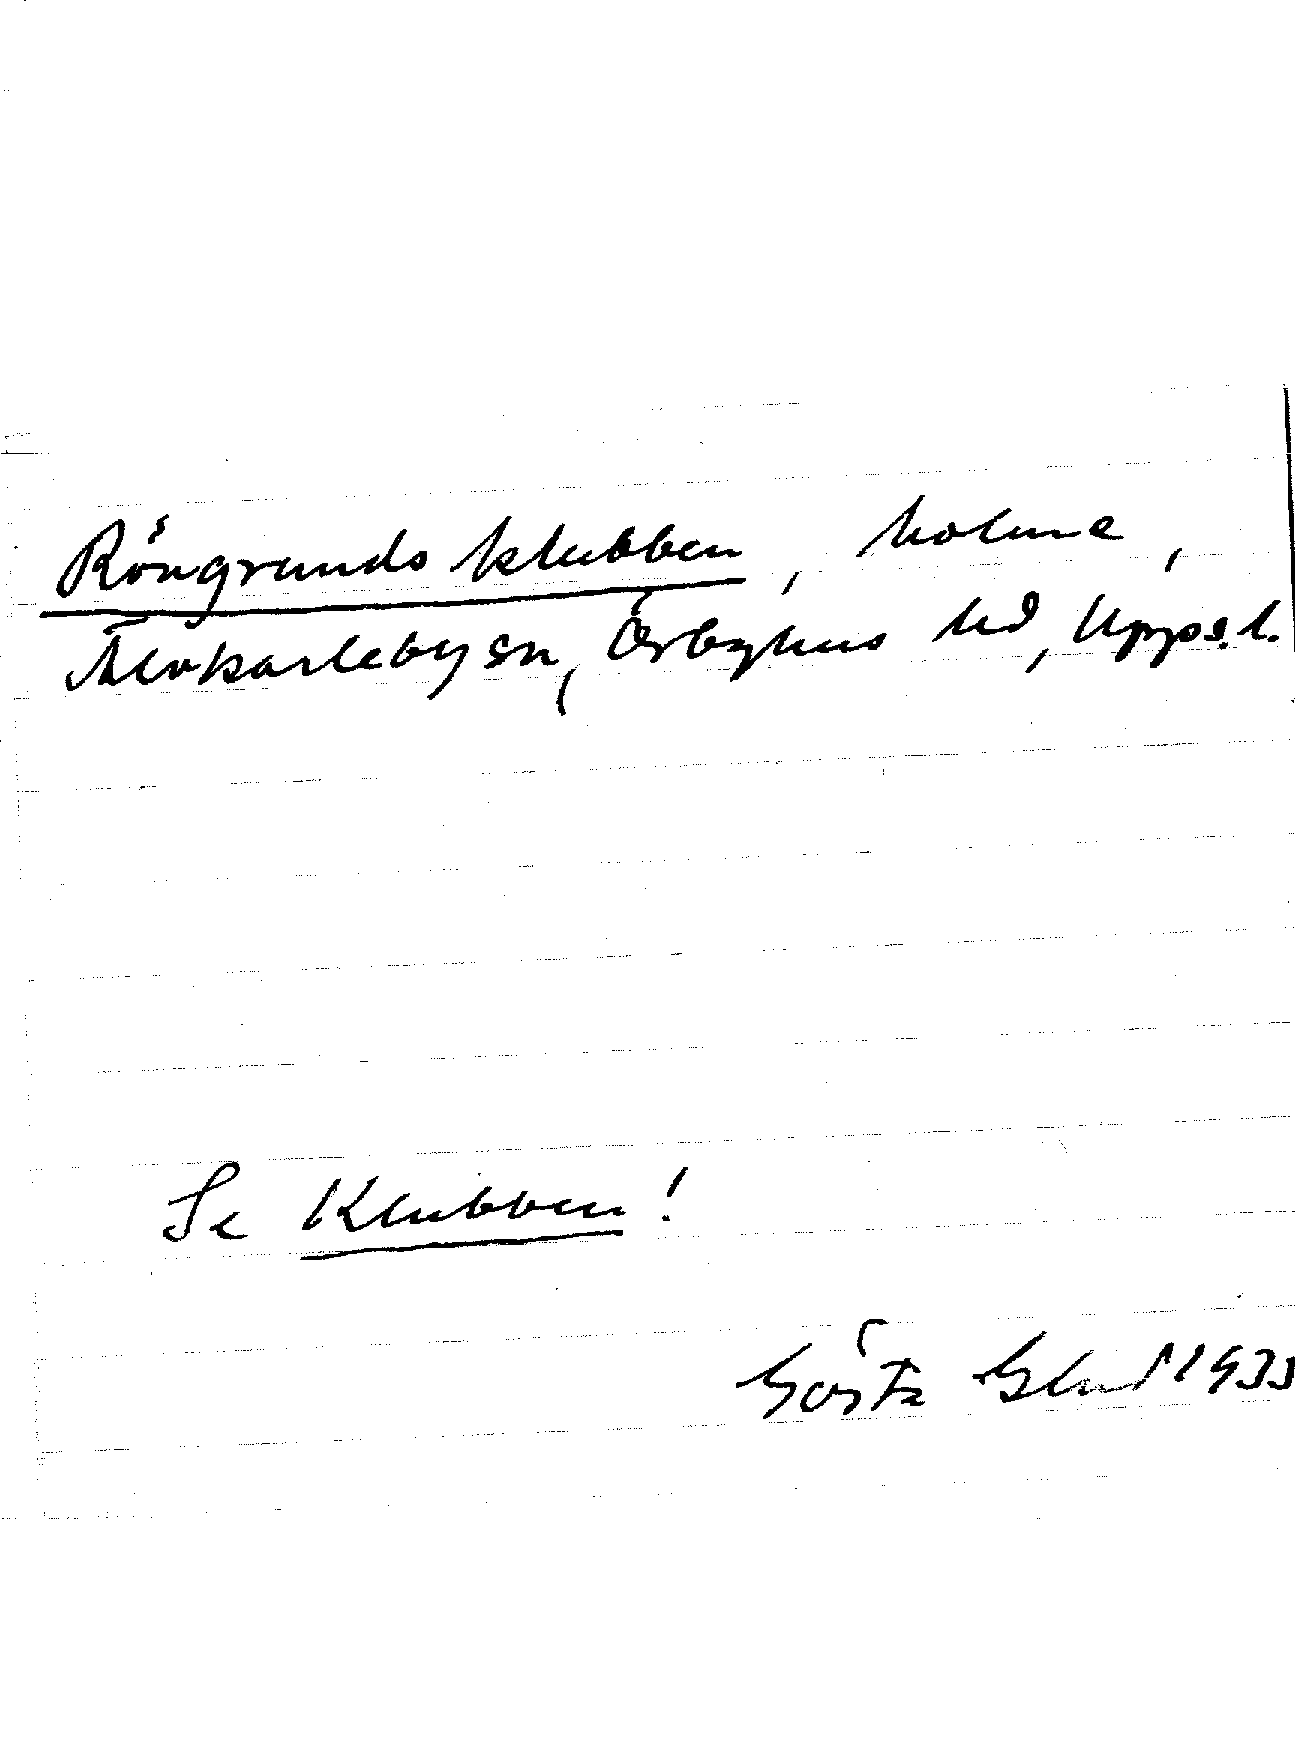 Röngrundsklubben, holme,
Älvkarleby sn, Örbyhus hd, Upps. l.
Se Klubben!
Gösta 1933